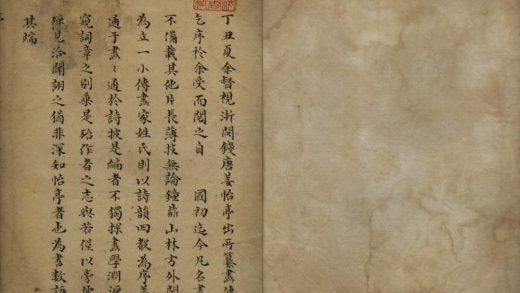 丁丑夏余督視浙關錢唐姜怡亭出所纂畫
乞序於余受而閱之自 國初迄今凡名
不備載其他片長薄技無論鐘鼎山林方外閨
為立一小傳畫家姓氏則以詩韻四聲為序
通于畫〻通於詩披是編者不獨探畫學淵
窺詞章之別乘是殆作者之志與若僅以旁
殫見洽聞詡之猶非深知怡亭者也為書數語
其端